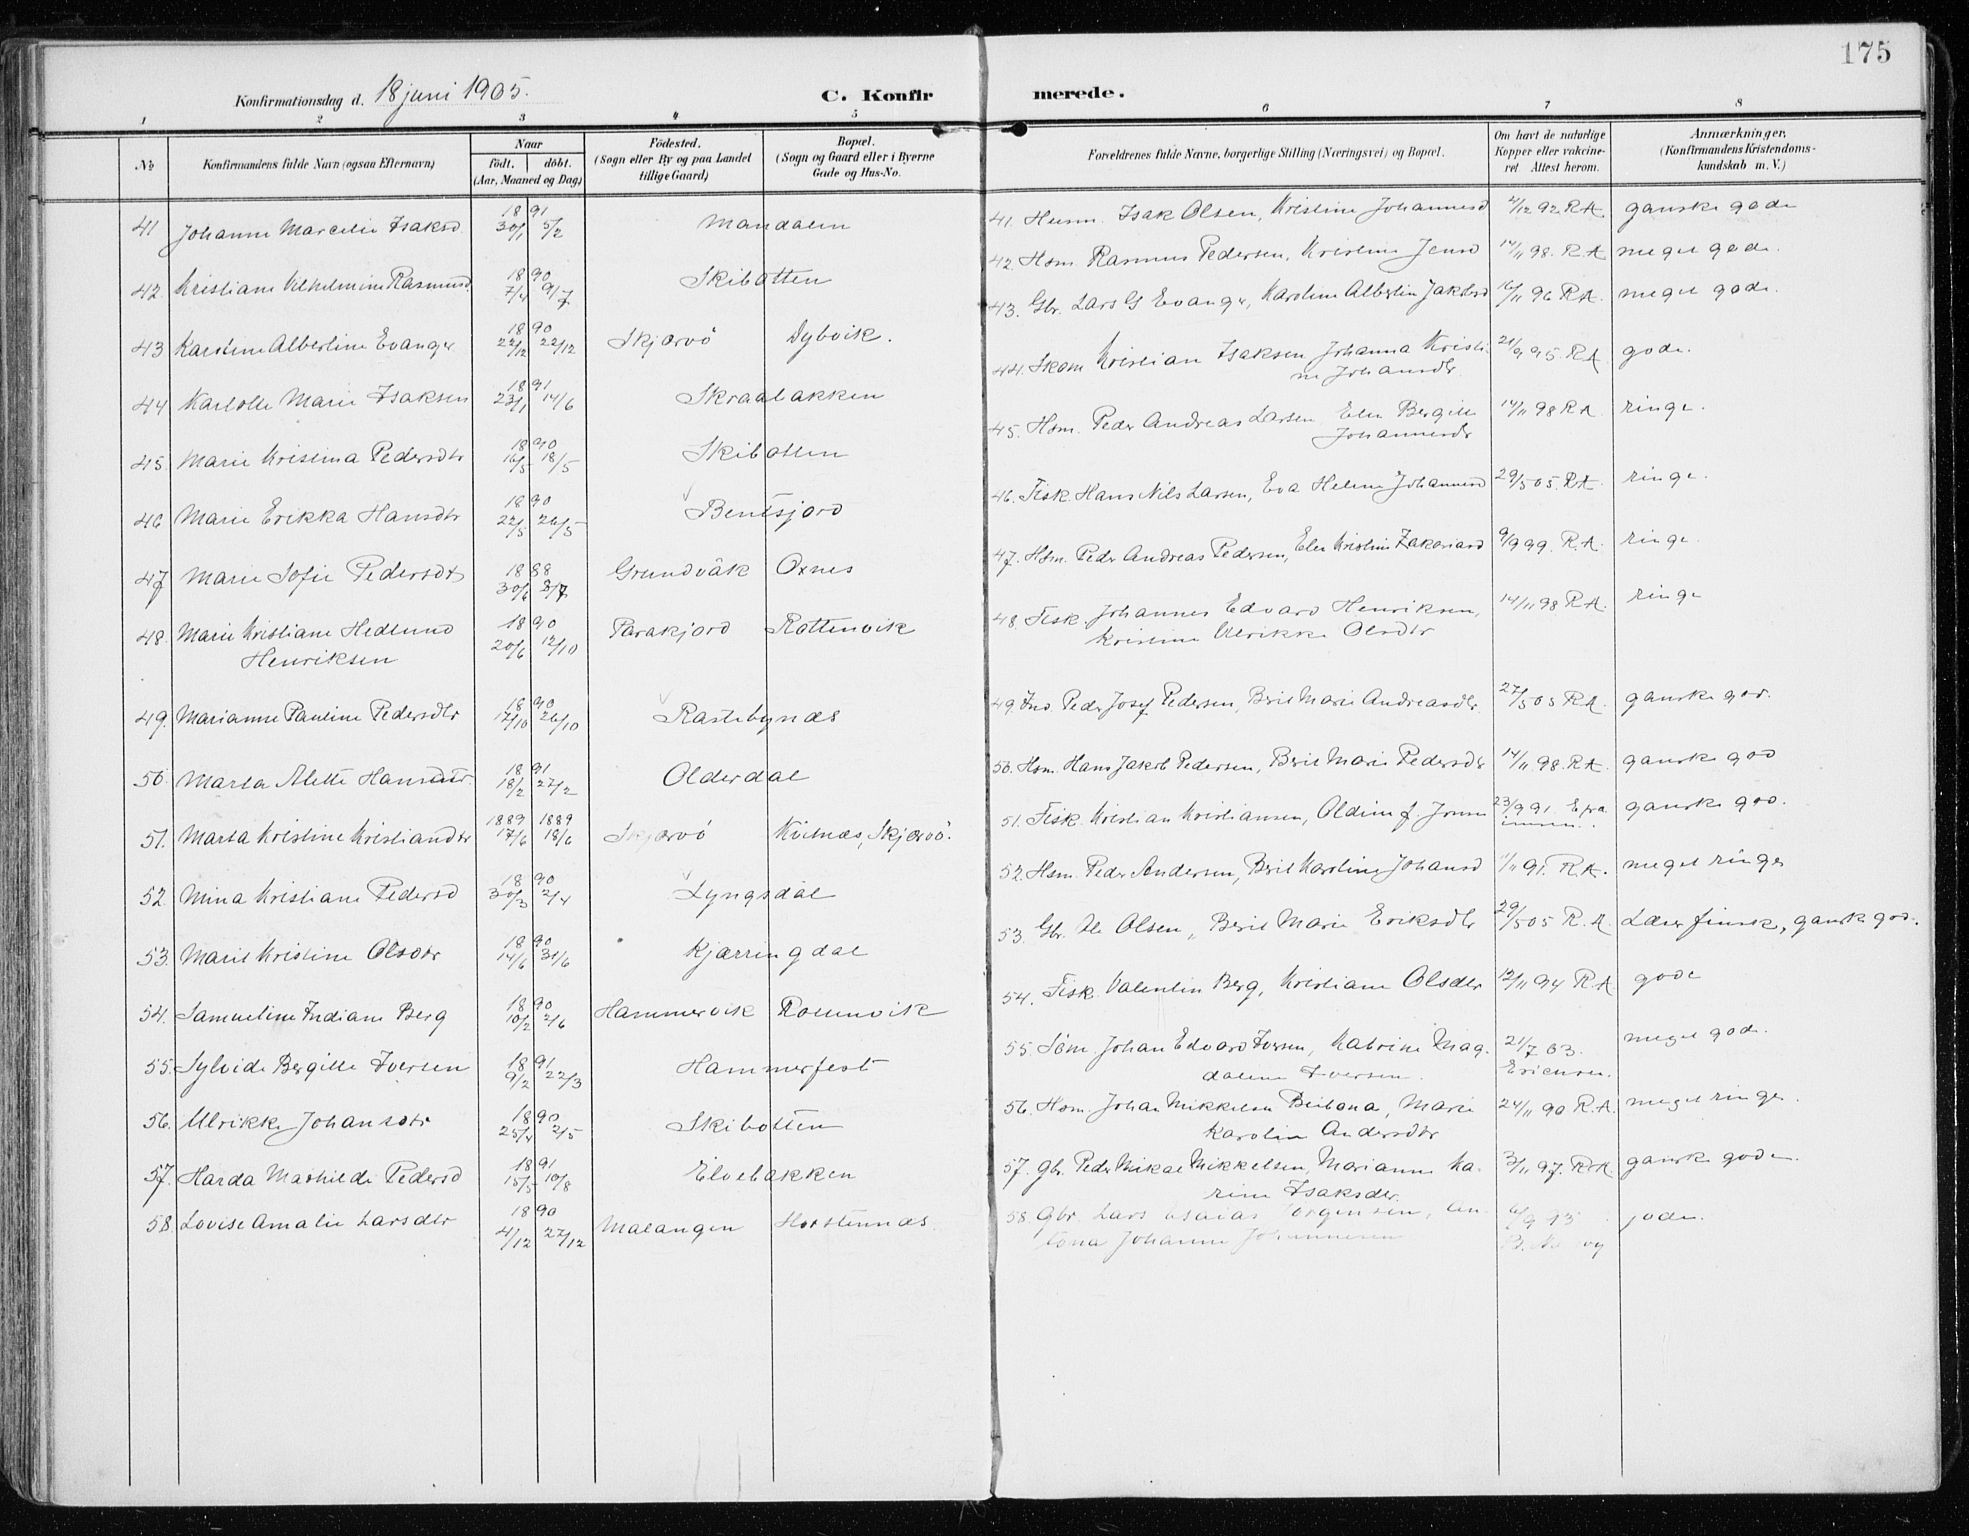 175
Konfirmationsdag d. 18 juni 1905.
C. Konfir
merede.
1 2 3 4 5 6 7 8
No
Konfirmandens fulde Navn (ogsaa Efternavn)
Naar
födt. döbt.
(Aar, Maaned og Dag)
Födested.
(Sogn eller By og paa Landet
tillige Gaard)
Bopæl.
(Sogn og Gaard eller i Byerne
Gade og Hus-No.
Forældrenes fulde Navne, borgerlige Stilling (Næringsvei) og Bopæl.
Om havt de naturlige
Kopper eller vakcine-
ret Attest herom.
Anmærkninger.
(Konfirmandens Kristendoms-
kundskab m. V.)
18 91
41 Johanne Marcelie Isaksd. 30/1 5/2 Mandalen
41. Husm. Isak Olsen, Kristine Johannesd 2/12 92 R.A. ganske gode
18 90
42. Kristiane Vilhelmine Rasmusd. 7/4 9/7 Skibotten
42. Hsm. Rasmus Pedersen, Kristine Jensd 14/11 98. R.A. meget gode.
18 90
43 Karoline Albertine Evanger 22/12 22/12 Skjærvö Dybvik.
43. Gbr. Lars G Evanger, Karoline Albertin Jakbsd 16/11 96 R.A. meget gode.
18 91
44 Karlotte Marie Isaksen 23/1 14/6 Skraabakken
44. Skom Kristian Isaksen Johanna Kristi- 21/9 95 R.A. gode.
ne Johansdtr.
18 90
45. Marie Kristina Pedersdtr 16/5 18/5 Skibotten
45. Hsm. Peder Andreas Larsen Elen Bergitte 14/11 98 R.A. ringe.
Johannesdtr
18 90
46 Marie Erikka Hansdtr 22/5 26/5 Bentsjord
46. Fisk. Hans Nils Larsen, Eva Helene Johannesd 29/5 05. R.A. ringe.
1888
47 Marie Sofie Pedersdtr 30/6 8/7 Grundvåk Oxnes
47. Hsm. Peder Andreas Pedersen, Elen Kristine Zakariasd 9/9 99. R.A. ringe.
18 90
48. Marie Kristiane Hedlund 20/6 12/10 Parakjord Rottenvik
Henriksen
48. Fisk Johannes Edvard Henriksen, 14/11 98 R.A. ringe
Kristine Ulrikke Olsdtr
18 90
49. Marianne Pauline Pedersdtr 17/10 26/10 Rastebynæs
49. Ind. Peder Josef Pedersen, Berit Marie Andreasdtr. 27/5 05 R.A. ganske god.
18 91
50. Marta Alette Hansdatr. 18/2 27/2 Olderdal
50. Hsm. Hans Jakob Pedersen, Berit Marie Pedersdtr 14/11 98. R.A. ganske god
1889 1889
51. Marta Kristine Kristiansdtr 17/6 18/6 Skjærvö Kvitnæs, Skjærvö.
51. Fisk. Kristian Kristiansen, Oldine f. 23/9 91 ganske god.
18 90
52. Mina Kristiane Pedersd 30/3 2/4 Lyngsdal
52. Hsm. Peder Andersen, Berit Karoline Johansd 1/11 91. R.A. meget ringe
18 90
53. Marit Kristine Olsdtr 14/6 31/6 Kjærringdal
53. Gbr. Ole Olsen, Berit Marie Eriksdtr 29/5 05 R.A. Læser finsk, ganske god.
18 90
54. Samueline Indiane Berg 10/2 2/6 Hammervik Rottenvik
54. Fisk. Valentin Berg, Kristiane Olsdtr 12/11 94 R.A. gode
18 91
55. Sylvide Bergitte Iversen 9/2 22/3 Hammerfest
55. Söm. Johan Edvard Iversen, Katrine Mag- 21/7 03. meget gode.
dalene Iversen. Ericksen.
18 90
56. Ulrikke Johansdtr 25/4 2/5 Skibotten
56. Hsm. Johan Mikkelsen Beibona, Marie 24/11 90 R.A. meget ringe.
Karolin Andersdtr
18 91
57. Harda Mathilde Pedersd 15/5 10/8 Elvebakken
57. Gbr. Peder Mikal Mikkelsen, Marianne Ka- 3/11 97. R.A. ganske gode.
rine Isaksdtr.
18 90
58. Lovise Amalie Larsdtr 4/12 27/12 Malangen Horstennæs.
58. Gbr. Lars Esaias Jörgensen, An- 13 gode.
tona Johanne Johannesen